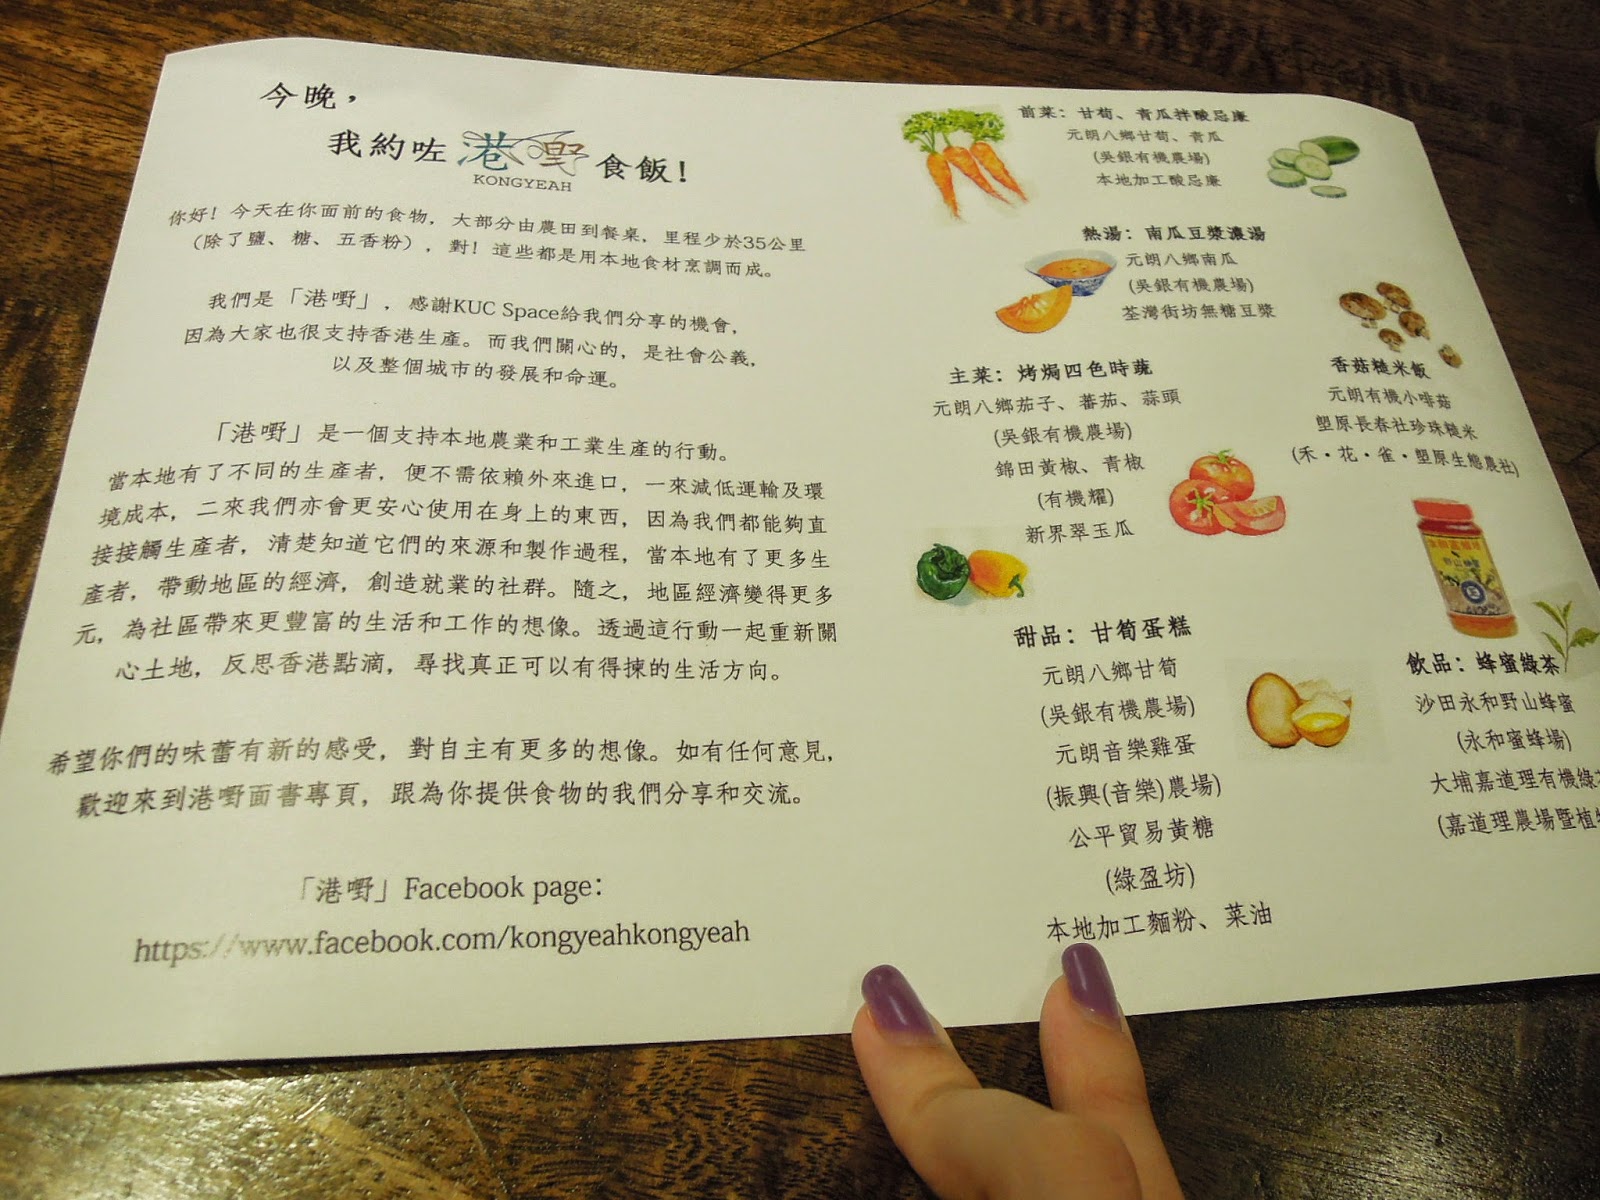 今晚，
我約咗港嘢食飯！
KONGYEAH
你好！今天在你面前的食物，大部分由農田到餐桌，里程少於35公里
（除了鹽、糖、五香粉），對！這些都是用本地食材烹調而成。
我們是「港嘢」，感謝KUC Space給我們分享的機會，
因為大家也很支持香港生產。而我們關心的，是社會公義，
以及整個城市的發展和命運。
「港嘢」是一個支持本地農業和工業生產的行動。
當本地有了不同的生產者，便不需依賴外來進口，一來減低運輸及環
境成本，二來我們亦會更安心使用在身上的東西，因為我們都能夠直
接接觸生產者，清楚知道它們的來源和製作過程，當本地有了更多生
產者，帶動地區的經濟，創造就業的社群。隨之，地區經濟變得更多
元，為社區帶來更豐富的生活和工作的想像。透過這行動一起重新關
心土地，反思香港點滴，尋找真正可以有得揀的生活方向。
希望你們的味蕾有新的感受，對自主有更多的想像。如有任何意見，
歡迎來到港嘢面書專頁，跟為你提供食物的我們分享和交流。
「港嘢」Facebook page：
https://www.facebook.com/kongyeahkongyeah
前菜：甘荀、青瓜拌酸忌廉
元朗八鄉甘荀、青瓜
(吳銀有機農場)
本地加工酸忌廉
熱湯：南瓜豆漿濃湯
元朗八鄉南瓜
(吳銀有機農場)
荃灣街坊無糖豆漿
主菜：烤焗四色時蔬
元朗八鄉茄子、蕃茄、蒜頭
(吳銀有機農場)
錦田黃椒、青椒
(有機耀)
新界翠玉瓜
香菇糙米飯
元朗有機小啡菇
塱原長春社珍珠糙米
(禾・花・雀・塱原生態農社)
甜品：甘筍蛋糕
元朗八鄉甘筍
(吳銀有機農場)
元朗音樂雞蛋
(振興(音樂)農場)
公平貿易黃糖
(綠盈坊)
本地加工麵粉、菜油
飲品：蜂蜜綠茶
沙田永和野山蜂蜜
(永和蜜蜂場)
大埔嘉道理有機綠
(嘉道理農場暨植